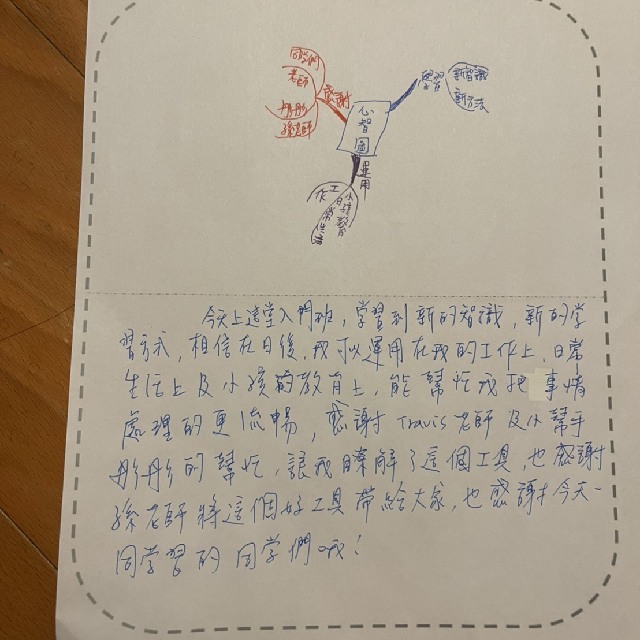 同學們
老師
彤彤
孫老師
感謝
心智圖
學習
新智識
新方式
運用
工作
日常生活
小孩教育
今天上這堂入門班，學習到新的智識，新的學
習方式，相信在日後，我可以運用在我的工作上，日常
生活上及小孩的教育上，能幫忙我把事情
處理的更流暢，感謝Travis老師及小幫手
彤彤的幫忙，讓我瞭解了這個工具，也感謝
孫老師將這個好工具帶給大家，也感謝今天一
同學習的同學們哦！